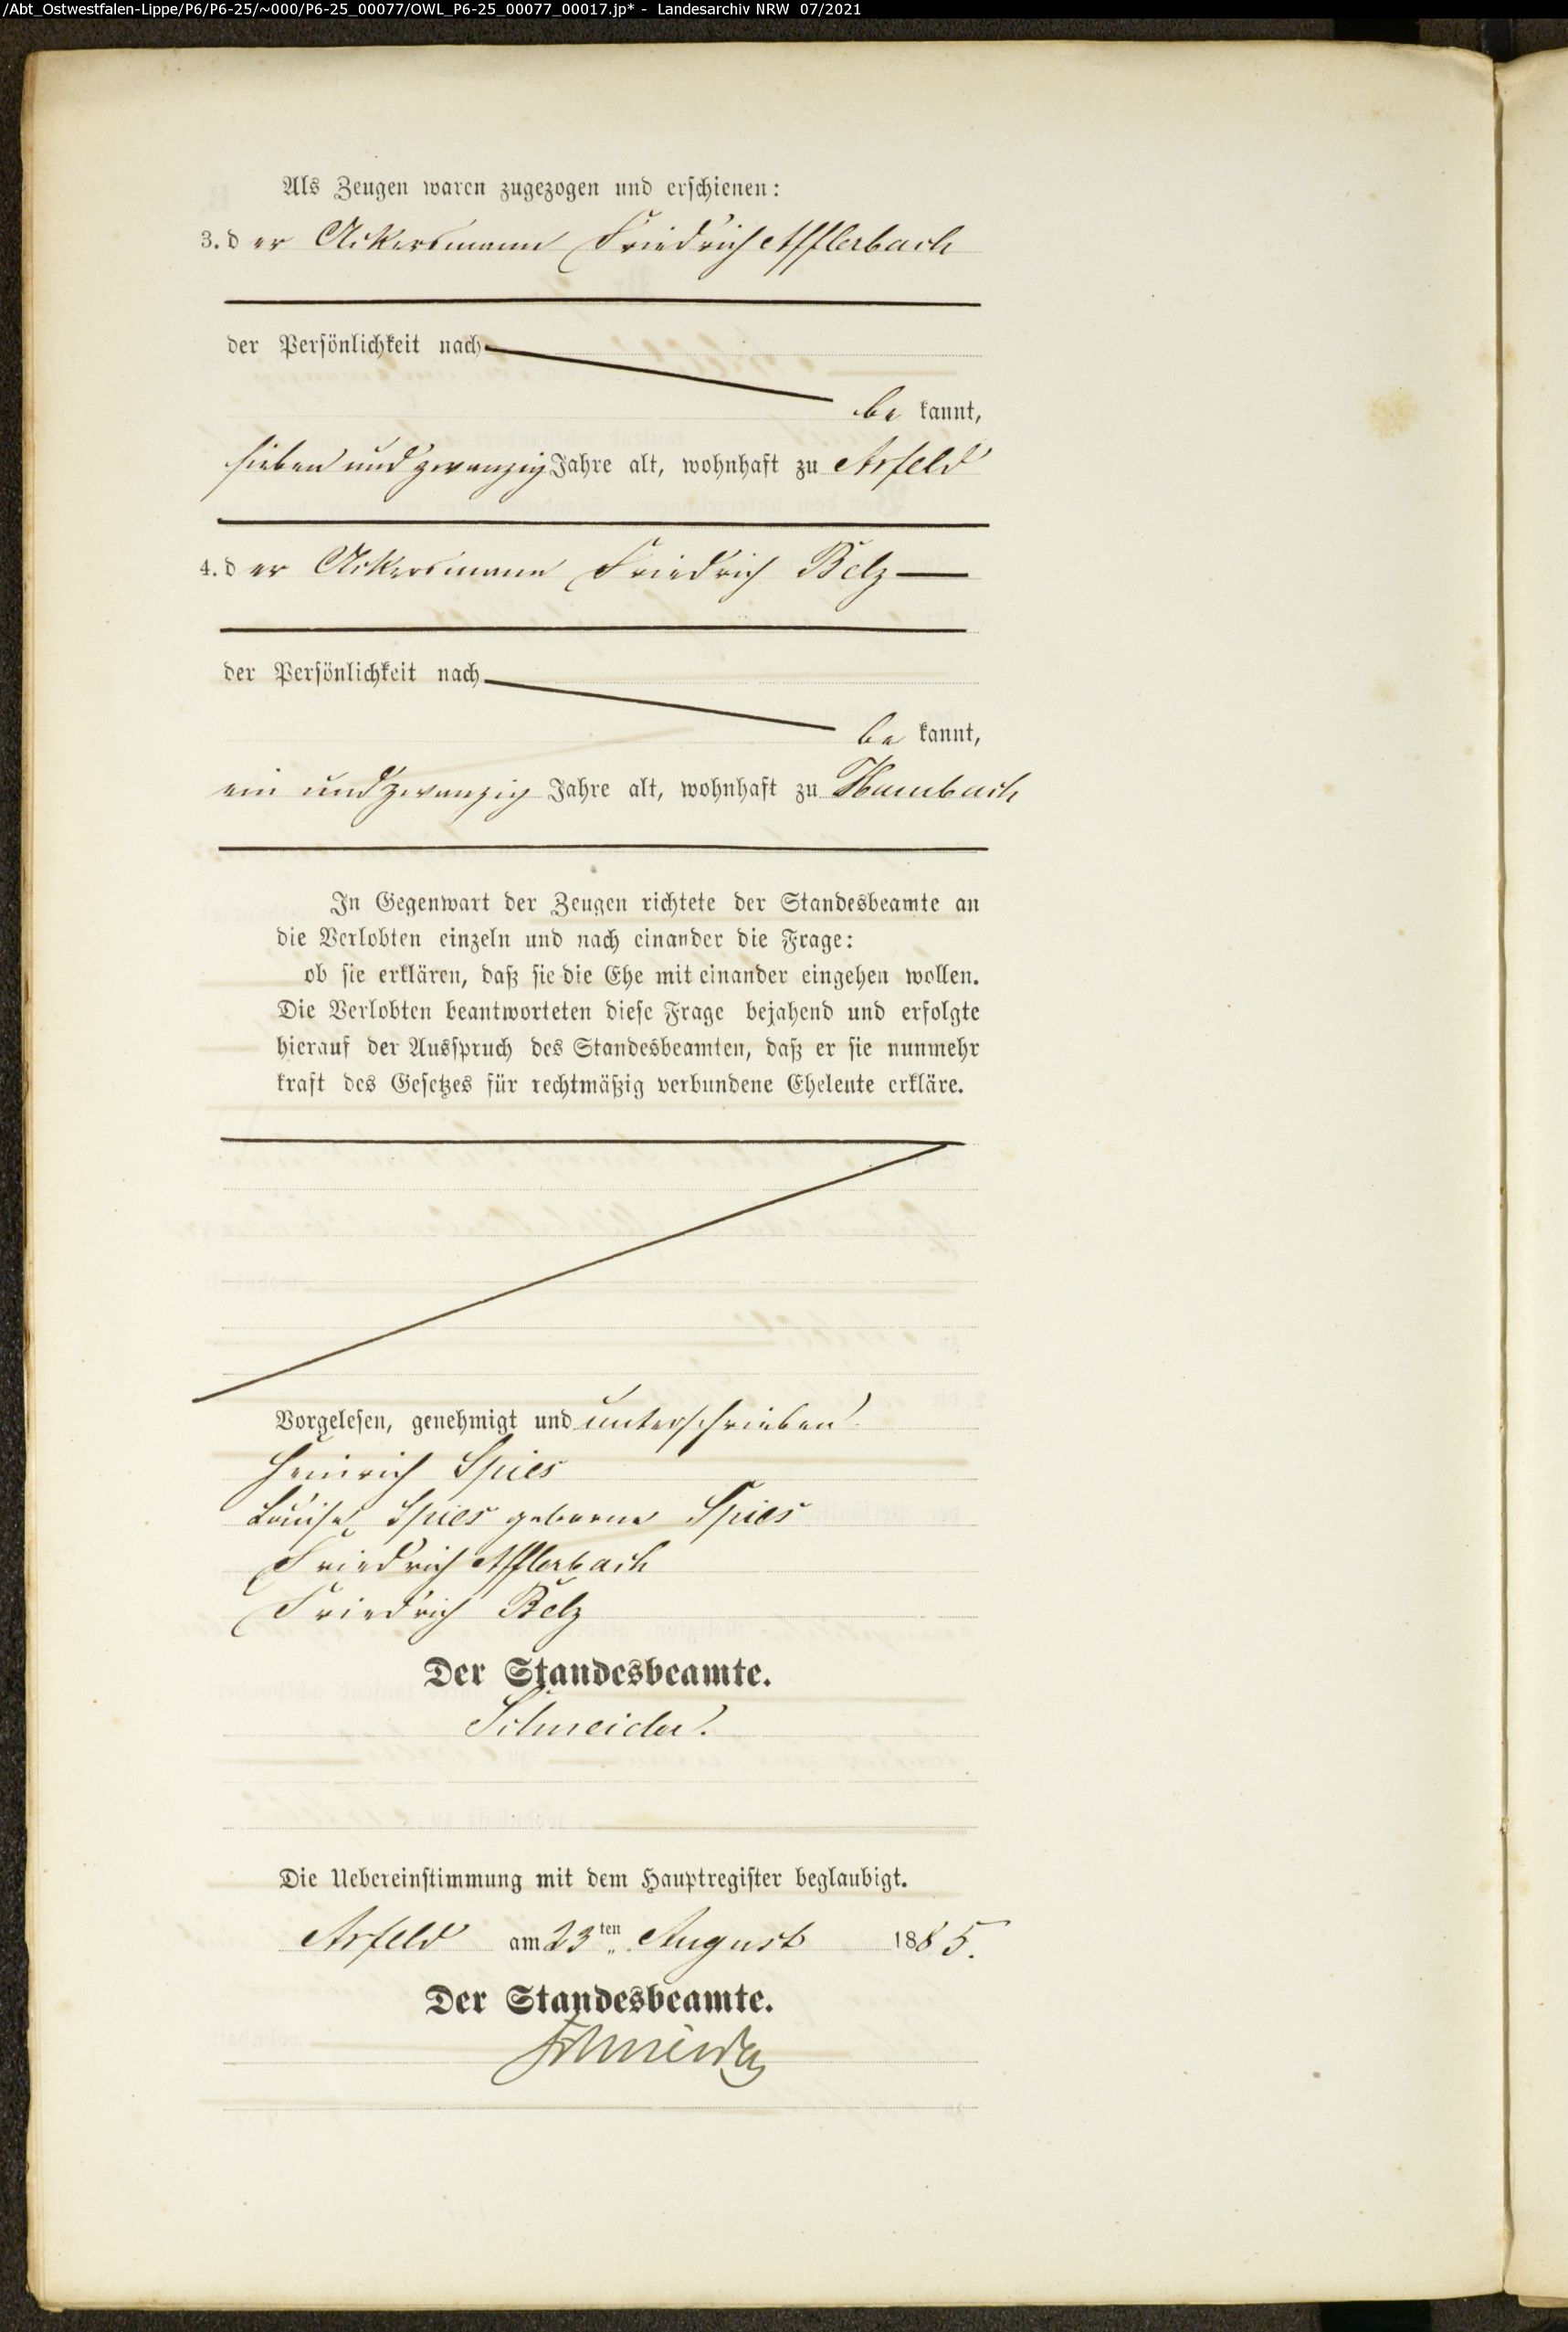 /Abt_Ostwestfalen-Lippe/P6/P6-25/~000/P6-25_00077/OWL_P6-25_00077_00017.jp* - Landesarchiv NRW 07/2021
Als Zeugen waren zugezogen und erschienen:
3. der Ackersmann Friedrich Afflerbach
der Persönlichkeit nach
be kannt,
sieben und zwanzig Jahre alt, wohnhaft zu Arfeld
4. der Ackersmann Friedrich Belz
der Persönlichkeit nach
be kannt,
ein und zwanzig Jahre alt, wohnhaft zu
In Gegenwart der Zeugen richtete der Standesbeamte an
die Verlobten einzeln und nach einander die Frage:
ob sie erklären, daß sie die Ehe mit einander eingehen wollen.
Die Verlobten beantworteten diese Frage bejahend und erfolgte
hierauf der Ausspruch des Standesbeamten, daß er sie nunmehr
kraft des Gesetzes für rechtmäßig verbundene Eheleute erkläre.
Vorgelesen, genehmigt und unterschrieben
Heinrich Spies
Louise Spies geborne Spies
Friedrich Afflerbach
Friedrich Belz
Der Standesbeamte.
Schneider.
Die Uebereinstimmung mit dem Hauptregister beglaubigt.
Arfeld am 23ten August 1885.
Der Standesbeamte.
Schneider